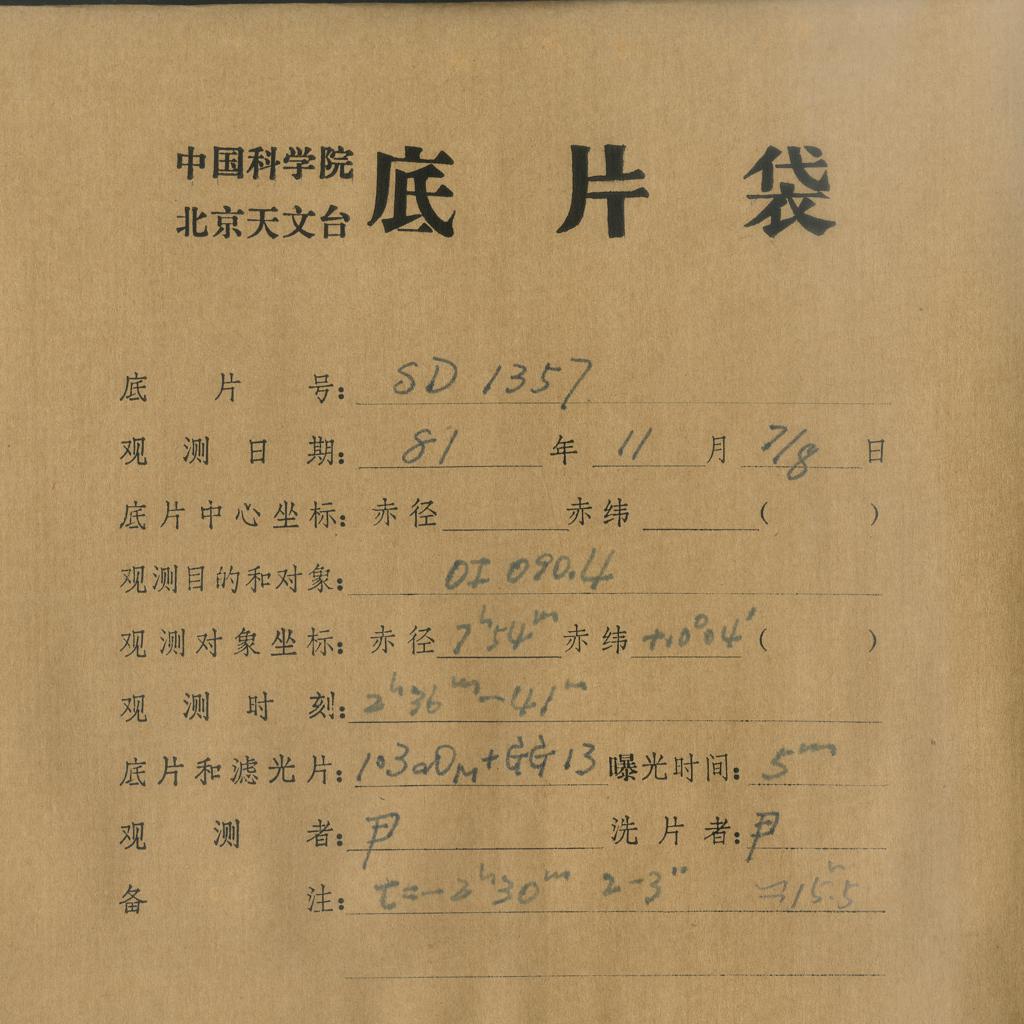 中国科学院
北京天文台
底片袋
底片号: SD 1357
观测日期: 81年11月7/8日
底片中心坐标: 赤径 赤纬 ( )
观测目的和对象: OI 090.4
观测对象坐标: 赤径 7ʰ54ᵐ 赤纬 +10°04′ ( )
观测时刻: 2ʰ36ᵐ-41ᵐ
底片和滤光片: 103aO + GG 13 曝光时间: 5ᵐ
观测者: 尹 洗片者: 尹
备注: t=-2ʰ30ᵐ 2-3″ 15.5